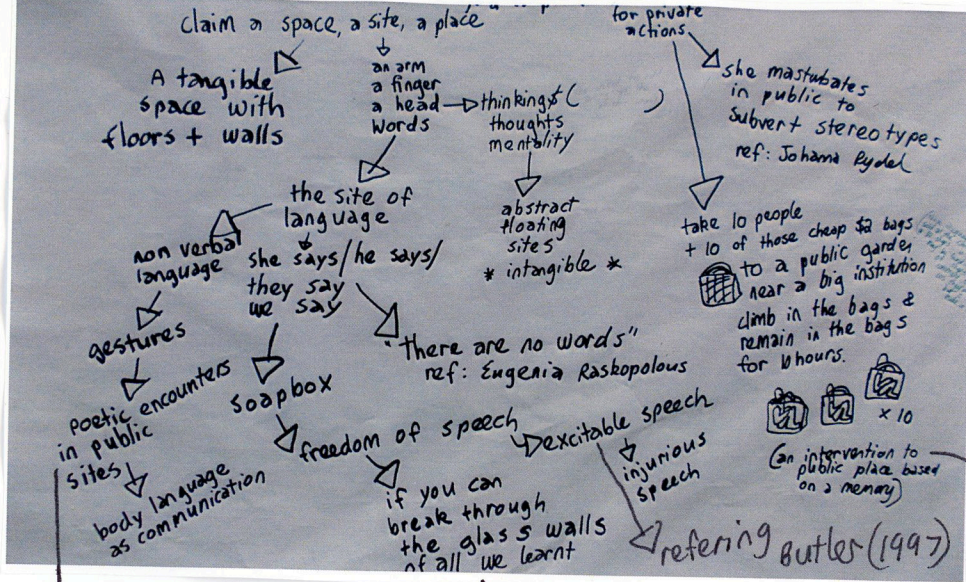 claim a space, a site, a place
A tangible
space with
floors + walls
an arm
a finger
a head
words
thinking
thoughts
mentality
abstract
floating
sites
* intangible *
the site of
language
non verbal
language
gestures
poetic encounters
in public
sites
body language
as communication
she says/he says/
they say
we say
soapbox
freedom of speech
if you can
break through
the glass walls
of all we learnt
"there are no words"
ref: Eugenia Raskopolous
excitable speech
injurious
speech
refering Butler (1997)
for private
actions
she mastubates
in public to
subvert stereotypes
ref: Johana
take 10 people
+ 10 of those cheap $2 bags
to a public garden
near a big institution
climb in the bags &
remain in the bags
for 10 hours.
x 10
(an intervention to
public place based
on a memory)